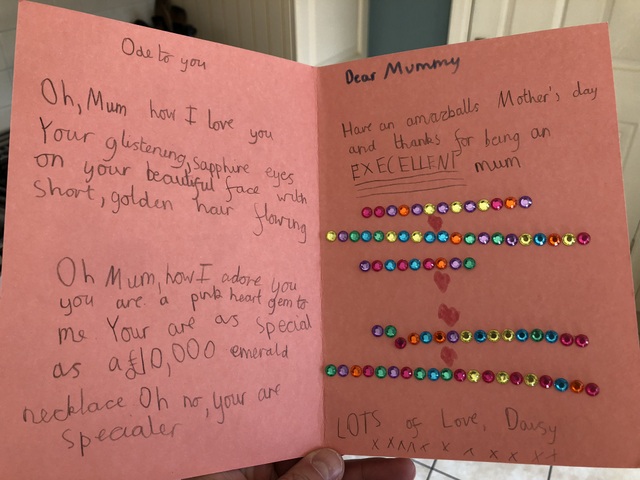 Ode to you
Oh, Mum how I love you
Your glistening, sapphire eyes
on your beautiful face with
short, golden hair flowing
Oh Mum, how I adore you
you are a pink heart gem to
me Your are as special
as a £10,000 emerald
necklace Oh no, your are
specialer
Dear Mummy
Have an amazballs Mother's day
and thanks for being an
EXECELLENT mum
LOTS of Love, Daisy
x x x x x x x x x x x